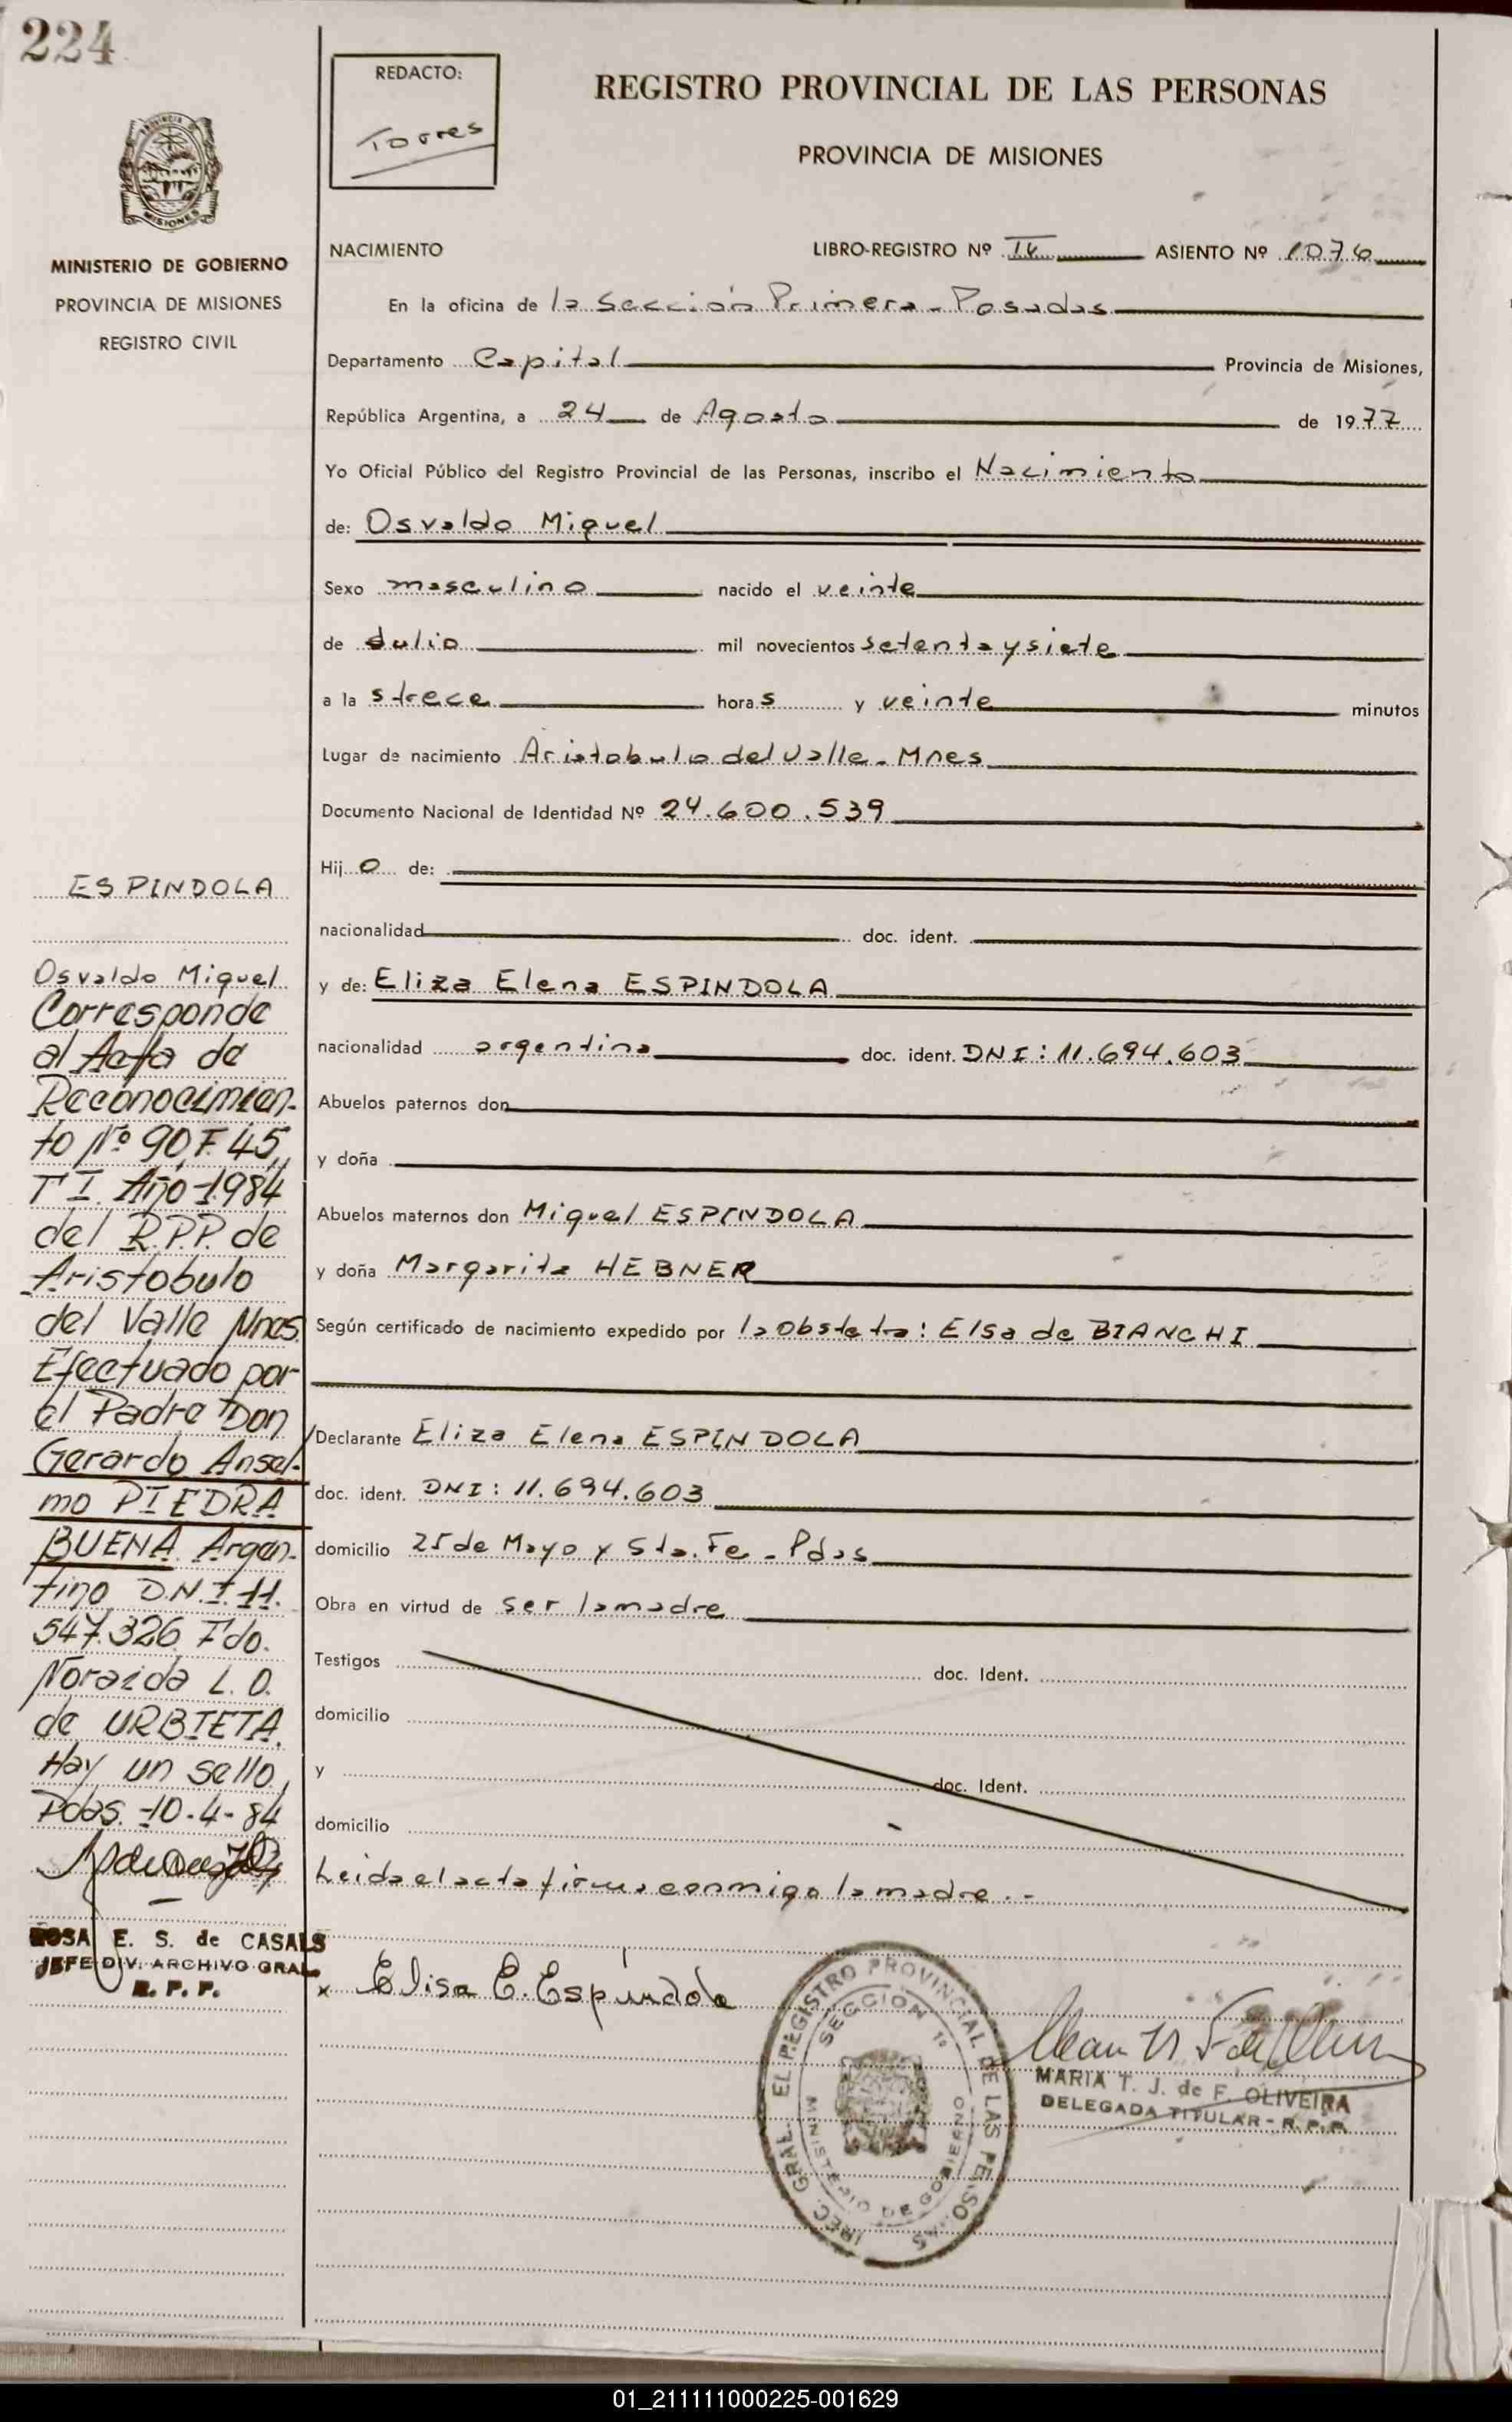 224
REDACTO:
Torres
REGISTRO PROVINCIAL DE LAS PERSONAS
PROVINCIA DE MISIONES
PROVINCIA
MISIONES
MINISTERIO DE GOBIERNO
PROVINCIA DE MISIONES
REGISTRO CIVIL
NACIMIENTO LIBRO-REGISTRO Nº IV ASIENTO Nº 1076
En la oficina de la Sección Primera - Posadas
Departamento Capital Provincia de Misiones,
República Argentina, a 24 de Agosto de 1977
Yo Oficial Público del Registro Provincial de las Personas, inscribo el Nacimiento
de: Osvaldo Miguel
Sexo masculino nacido el veinte
de Julio mil novecientos setenta y siete
a la s trece hora s y veinte minutos
Lugar de nacimiento Aristobulo del Valle - Mnes
Documento Nacional de Identidad Nº 24.600.539
Hij o de:
nacionalidad doc. ident.
y de: Eliza Elena ESPINDOLA
nacionalidad argentina doc. ident. DNI: 11.694.603
Abuelos paternos don
y doña
Abuelos maternos don Miguel ESPINDOLA
y doña Margarita HEBNER
Según certificado de nacimiento expedido por la Obstetra: Elsa de BIANCHI
Declarante Eliza Elena ESPINDOLA
doc. ident. DNI: 11.694.603
domicilio 25 de Mayo y Sta. Fe - Pdas
Obra en virtud de ser la madre
Testigos doc. Ident.
domicilio
y doc. Ident.
domicilio
Leida el acta firma conmigo la madre.-
x Elisa E. Espindola
ESPINDOLA
Osvaldo Miguel
Corresponde
al Acta de
Reconocimien-
to Nº 90, F. 45,
Tº I. Año 1984
del R.P.P. de
Aristobulo
del Valle Mnes
Efectuado por
el Padre Don
Gerardo Ansel-
mo PIEDRA
BUENA Argen-
tino D.N.I. 11.
547.326 Fdo.
Noraida L. O.
de URBIETA.
Hay un sello,
Pdas. 10-4-84
ROSA E. S. de CASALS
JEFE DIV. ARCHIVO GRAL
R. P. P.
DIREC. GRAL. EL REGISTRO PROVINCIAL DE LAS PERSONAS
SECCION 1º
MINISTERIO DE GOBIERNO
MARIA T. J. de F. OLIVEIRA
DELEGADA TITULAR - R. P. P.
01_211111000225-001629